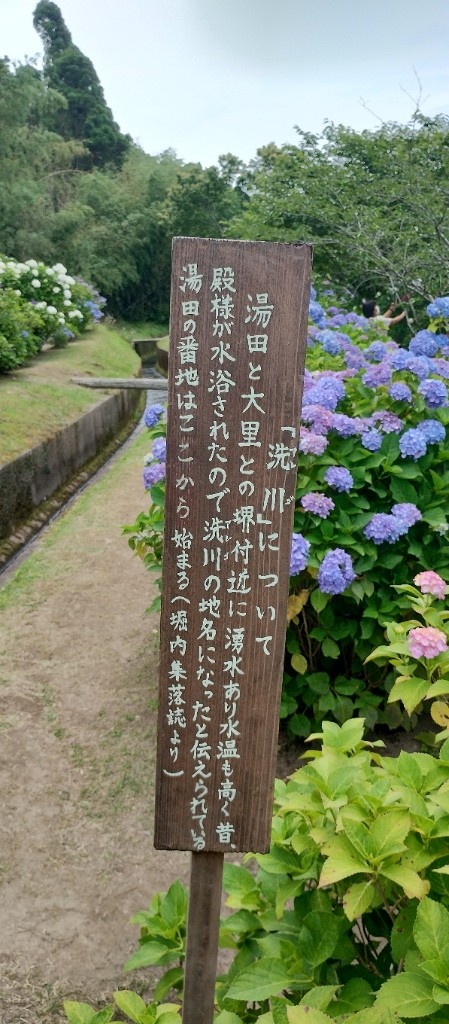 「洗川」について
湯田と大里との堺付近に湧水あり水温も高く昔、
殿様が水浴されたので洗川の地名になったと伝えられている
湯田の番地はここから始まる(堀内集落読より)